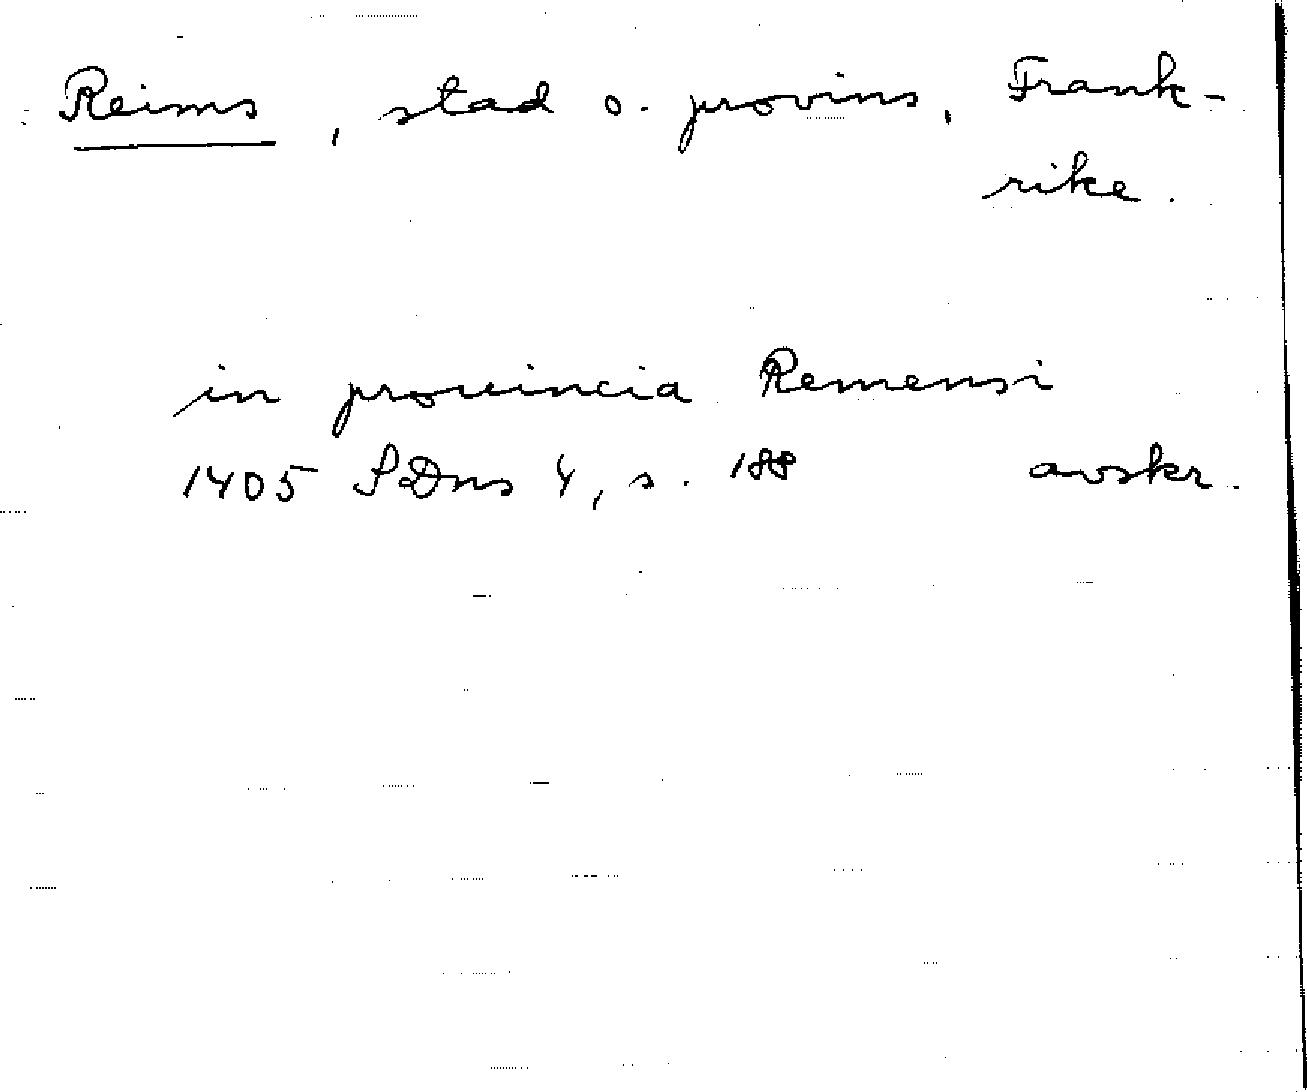 Reims, stad o. provins, Frank-
rike.
in prouincia Remensi
1405 SDns 4, s. 188 avskr.